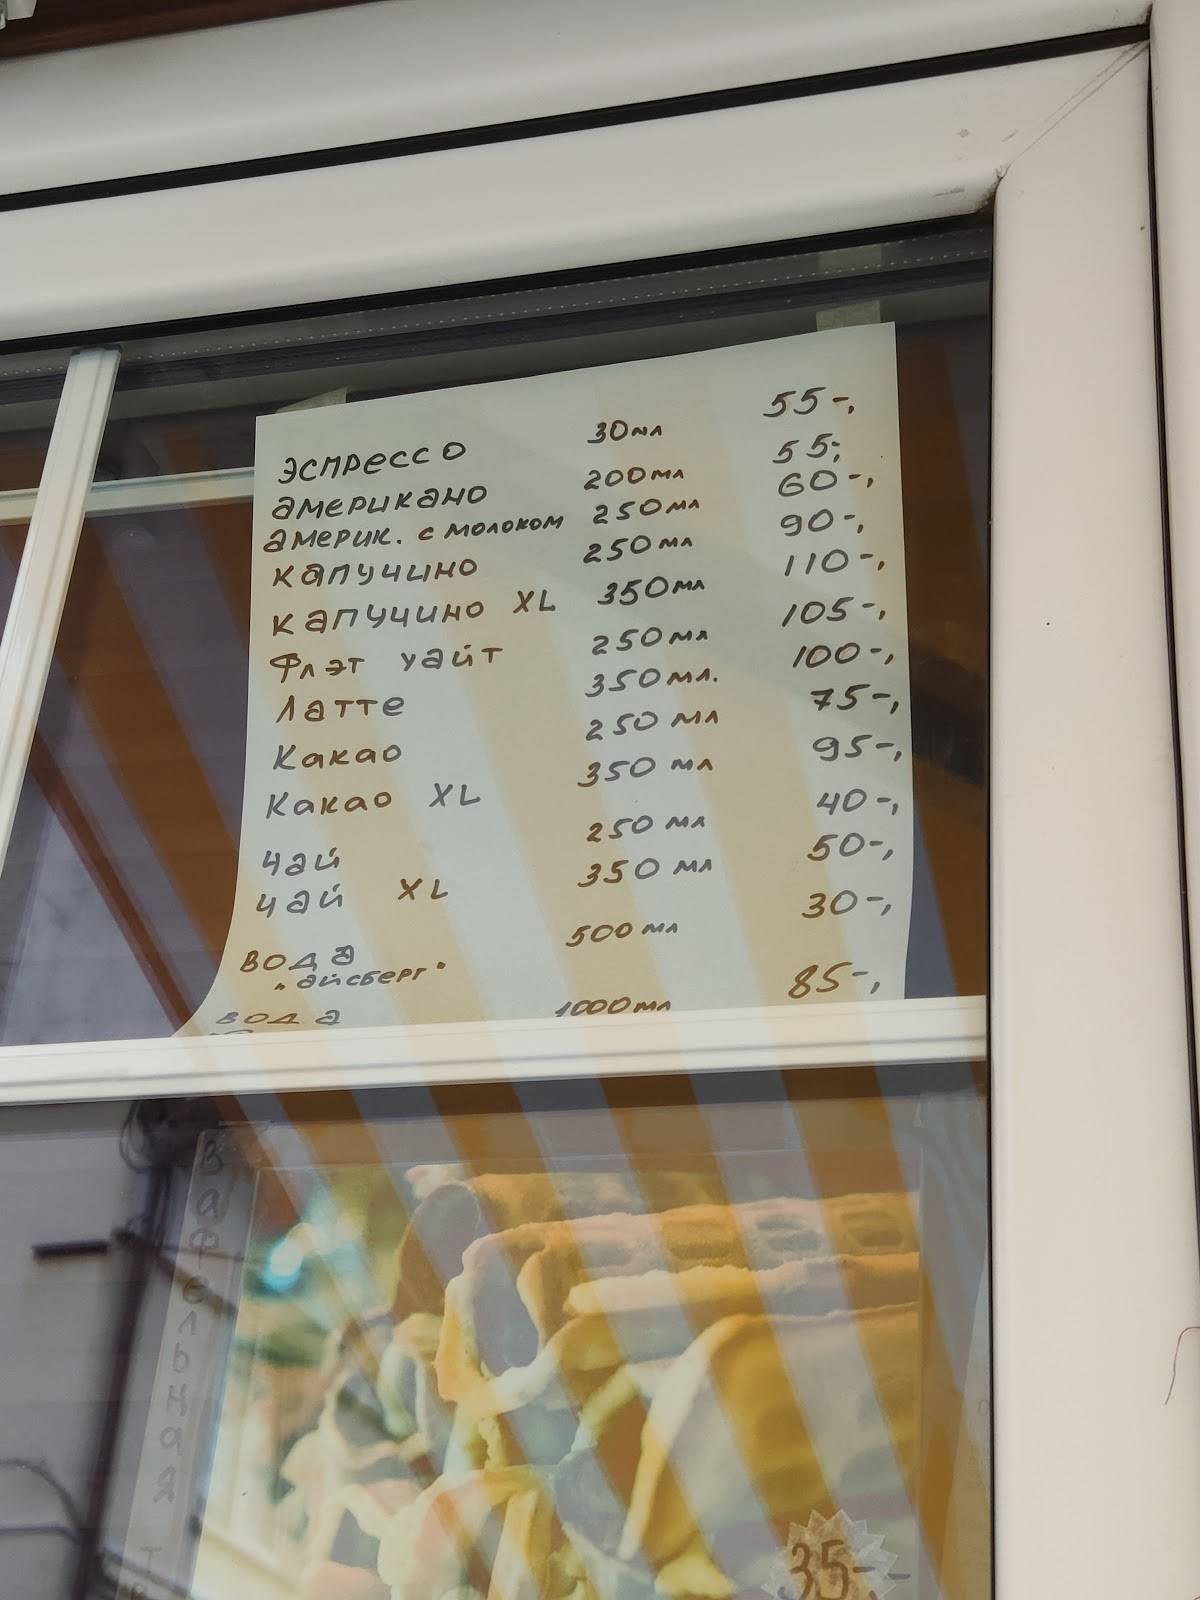 эспрессо 30мл 55-,
американо 200мл 55-,
америк. с молоком 250мл 60-,
капучино 250мл 90-,
капучино XL 350мл 110-,
Флэт уайт 250мл 105-,
Латте 350мл. 100-,
Какао 250мл 75-,
Какао XL 350мл 95-,
чай 250мл 40-,
чай XL 350мл 50-,
вода 500мл 30-,
"айсберг"
вода 1000мл 85-,
Вафельная
35-,